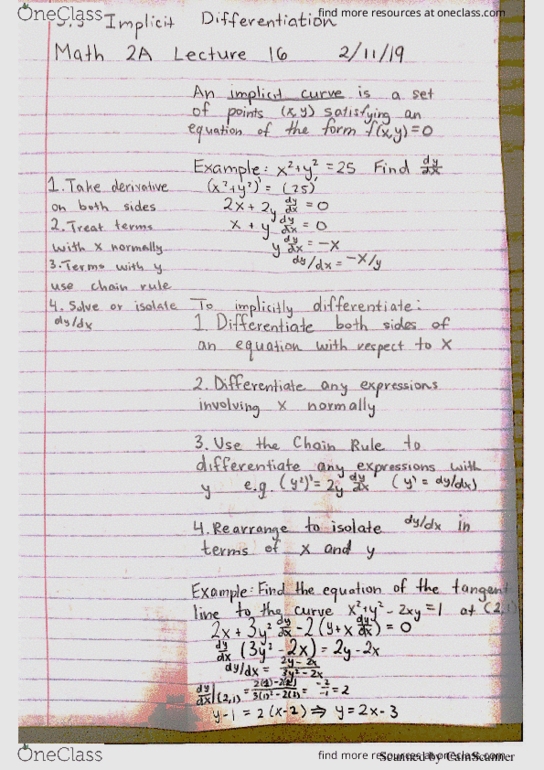 OneClass
find more resources at oneclass.com
Implicit Differentiation
Math 2A Lecture 16 2/11/19
An implicit curve is a set
of points (x,y) satisfying an
equation of the form f(x,y)=0
Example: x²+y²=25 Find dy/dx
(x²+y²)' = (25)'
2x + 2y dy/dx = 0
x + y dy/dx = 0
y dy/dx = -x
dy/dx = -x/y
1. Take derivative
on both sides
2. Treat terms
with x normally
3. Terms with y
use chain rule
4. Solve or isolate
dy/dx
To implicitly differentiate:
1. Differentiate both sides of
an equation with respect to x
2. Differentiate any expressions
involving x normally
3. Use the Chain Rule to
differentiate any expressions with
y e.g. (y²)' = 2y dy/dx (y' = dy/dx)
4. Rearrange to isolate dy/dx in
terms of x and y
Example: Find the equation of the tangent
line to the curve x²+y² - 2xy = 1 at (2,1)
2x + 3y² dy/dx - 2(y + x dy/dx) = 0
dy/dx (3y² - 2x) = 2y - 2x
dy/dx = 2y-2x / 3y²-2x
dy/dx|(2,1) = = -2/-1 = 2
y-1 = 2(x-2) ⇒ y = 2x-3
OneClass
find more resources at oneclass.com
Scanned by CamScanner